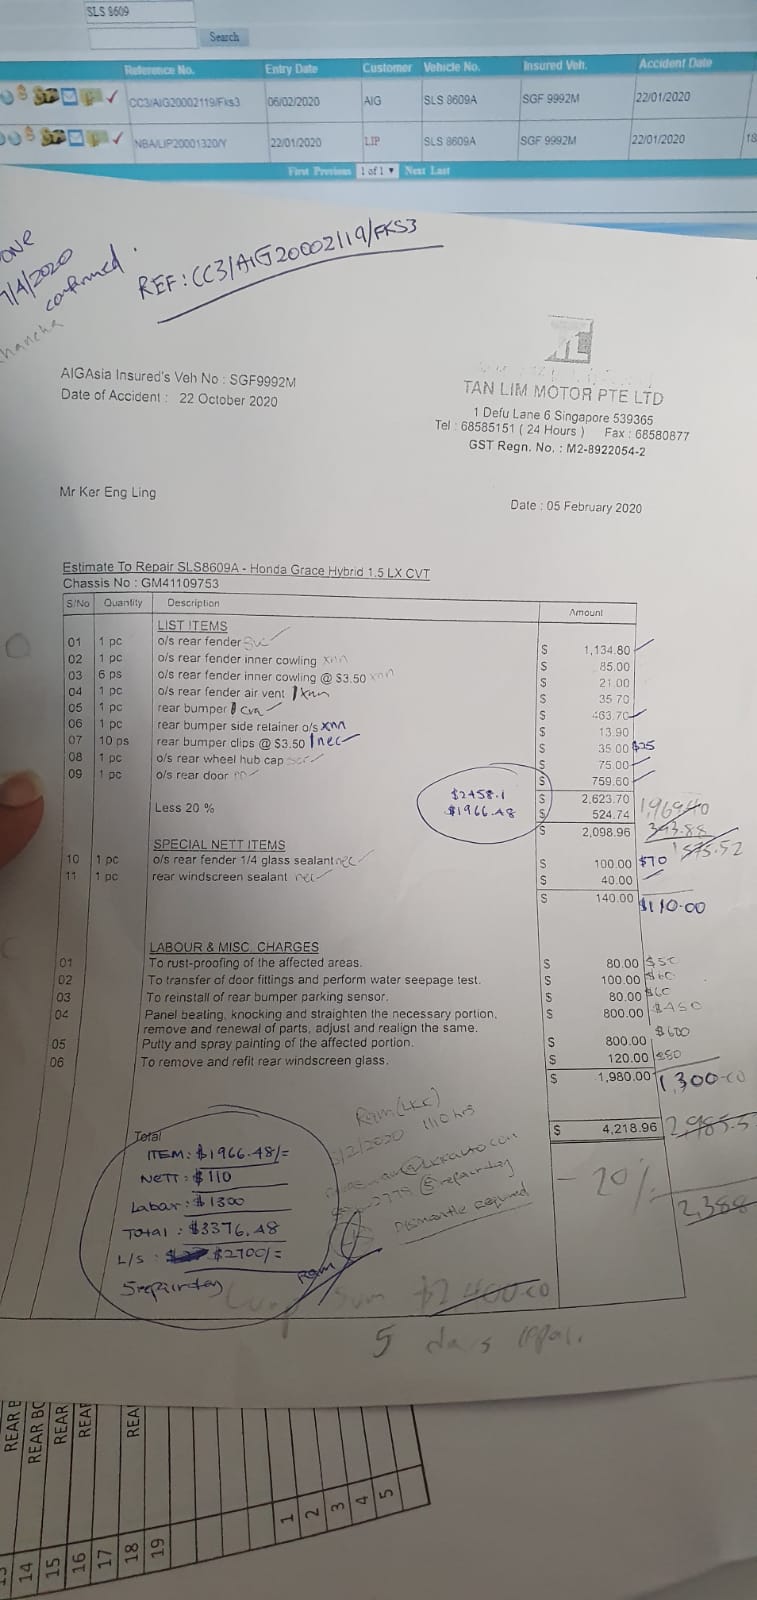 SLS 8609
Search
Reference No. Entry Date Customer Vehicle No. Insured Veh. Accident Date
CC3/AIG20002119/Fks3 06/02/2020 AIG SLS 8609A SGF 9992M 22/01/2020
NBA/LIP20001320/Y 22/01/2020 LIP SLS 8609A SGF 9992M 22/01/2020 18
First Previous 1 of 1 Next Last
ONE
/4/2020
confirmed.
REF: CC3/AIG20002119/FKS3
AIGAsia Insured's Veh No : SGF9992M
Date of Accident : 22 October 2020
TAN LIM MOTOR PTE LTD
1 Defu Lane 6 Singapore 539365
Tel : 68585151 ( 24 Hours ) Fax : 68580877
GST Regn. No. : M2-8922054-2
Mr Ker Eng Ling
Date : 05 February 2020
Estimate To Repair SLS8609A - Honda Grace Hybrid 1.5 LX CVT
Chassis No : GM41109753
S/No Quantity Description Amount
LIST ITEMS
01 1 pc o/s rear fender $ 1,134.80
02 1 pc o/s rear fender inner cowling xnn $ 85.00
03 6 ps o/s rear fender inner cowling @ $3.50 xnn $ 21.00
04 1 pc o/s rear fender air vent xnn $ 35.70
05 1 pc rear bumper cva $ 463.70
06 1 pc rear bumper side retainer o/s xnn $ 13.90
07 10 ps rear bumper clips @ $3.50 nec $ 35.00 $25
08 1 pc o/s rear wheel hub cap $ 75.00
09 1 pc o/s rear door $ 759.60
$2458.1 $ 2,623.70 1,969.40
Less 20 % $1966.48 $ 524.74 393.88
$ 2,098.96 1575.52
SPECIAL NETT ITEMS
10 1 pc o/s rear fender 1/4 glass sealant nec $ 100.00 $70
11 1 pc rear windscreen sealant nec $ 40.00
$ 140.00 $110.00
LABOUR & MISC. CHARGES
01 To rust-proofing of the affected areas. $ 80.00 $50
02 To transfer of door fittings and perform water seepage test. $ 100.00 $60
03 To reinstall of rear bumper parking sensor. $ 80.00 $60
04 Panel beating, knocking and straighten the necessary portion, $ 800.00 $450
remove and renewal of parts, adjust and realign the same.
$600
05 Putty and spray painting of the affected portion. $ 800.00
06 To remove and refit rear windscreen glass. $ 120.00 $80
$ 1,980.00 1,300-00
Ram (LKK)
/2/2020 1110 hrs
Total $ 4,218.96 2,985.5
ITEM: $1966.48/=
NETT: $110
Labar: $1300
Total: $3376.48
L/S: $2700/=
5 repair day
5 repair day
Dismantle Required
Ram
- 20%
2,388
Lump Sum $2400-00
5 days
REAR B
REAR BO
REAR
REAR
REA
14
15
16
17
18
19
1
2
3
4
5